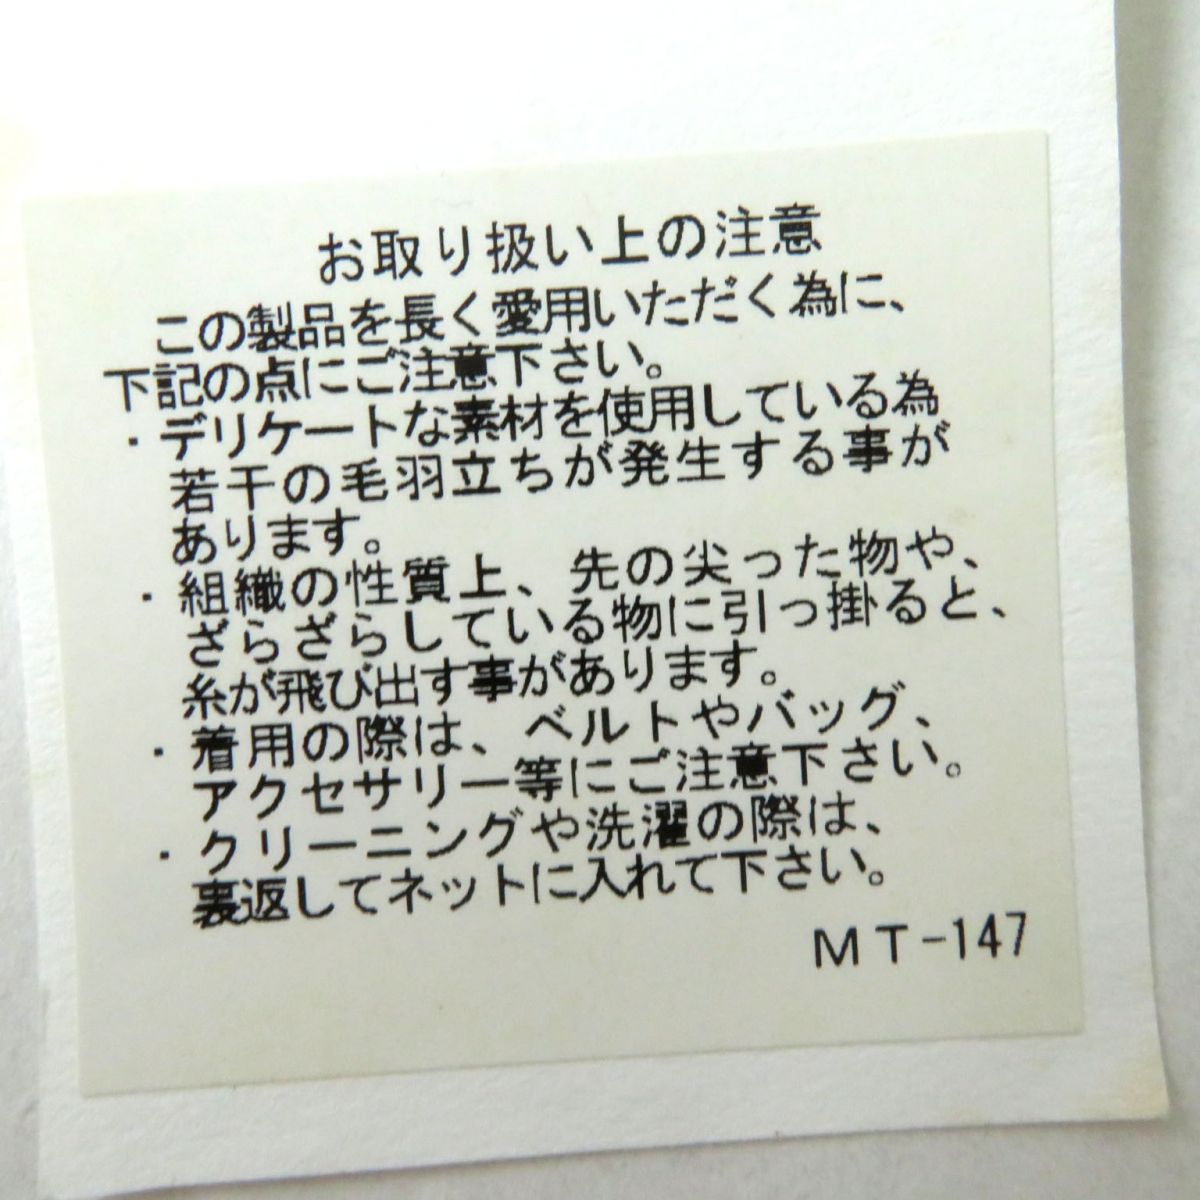 お取り扱い上の注意
この製品を長く愛用いただく為に、
下記の点にご注意下さい。
・デリケートな素材を使用している為
若干の毛羽立ちが発生する事が
あります。
・組織の性質上、先の尖った物や、
ざらざらしている物に引っ掛ると、
糸が飛び出す事があります。
・着用の際は、ベルトやバッグ、
アクセサリー等にご注意下さい。
・クリーニングや洗濯の際は、
裏返してネットに入れて下さい。
MT-147